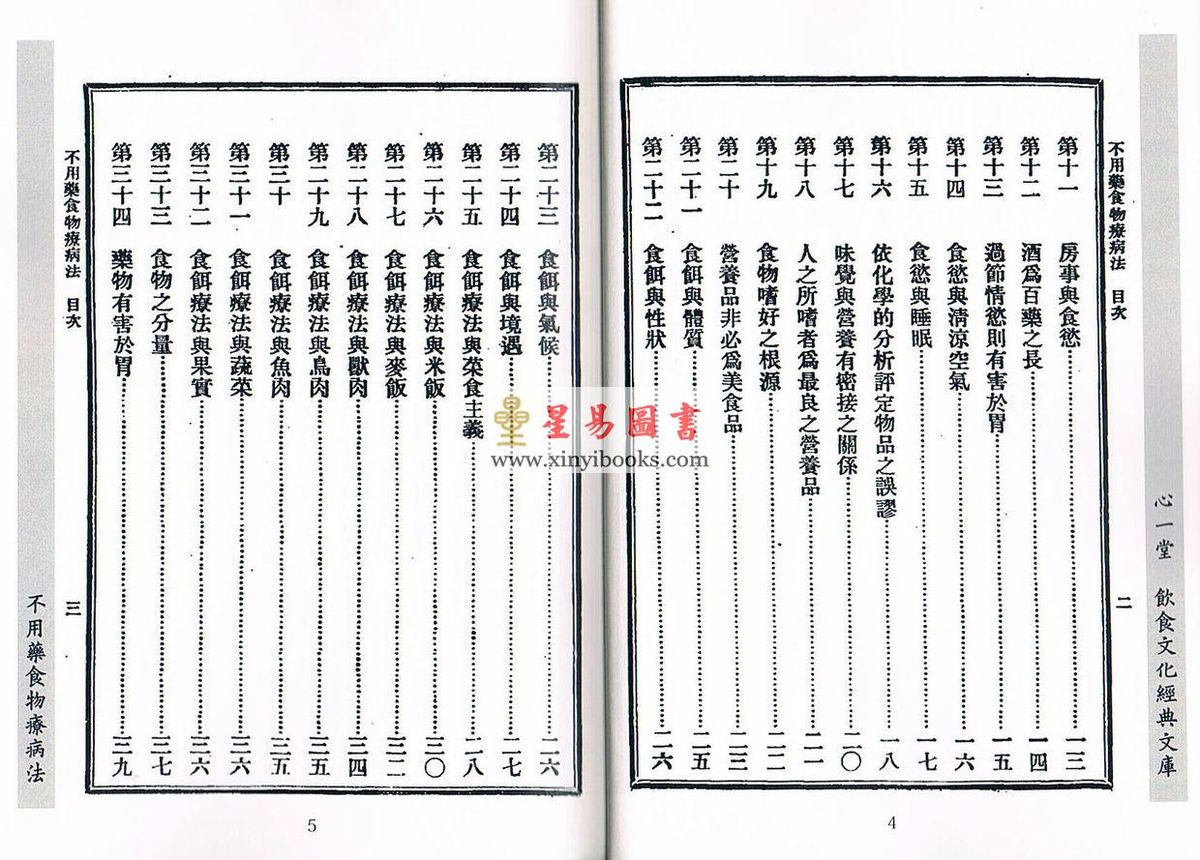 心一堂 飲食文化經典文庫
不用藥食物療病法 目次
二
第十一 房事與食慾 一三
第十二 酒爲百藥之長 一四
第十三 過節情慾則有害於胃 一五
第十四 食慾與清涼空氣 一六
第十五 食慾與睡眠 一七
第十六 依化學的分析評定物品之誤謬 一八
第十七 味覺與營養有密接之關係 二〇
第十八 人之所嗜者爲最良之營養品 二一
第十九 食物嗜好之根源 二二
第二十 營養品非必爲美食品 二三
第二十一 食餌與體質 二五
第二十二 食餌與性狀 二六
4
第二十三 食餌與氣候 二六
第二十四 食餌與境遇 二七
第二十五 食餌療法與菜食主義 二八
第二十六 食餌療法與米飯 三〇
第二十七 食餌療法與麥飯 三二
第二十八 食餌療法與獸肉 三四
第二十九 食餌療法與鳥肉 三五
第三十 食餌療法與魚肉 三五
第三十一 食餌療法與蔬菜 三六
第三十二 食餌療法與果實 三六
第三十三 食物之分量 三七
第三十四 藥物有害於胃 三九
不用藥食物療病法 目次
三
不用藥食物療病法
5
星易圖書
www.xinyibooks.com